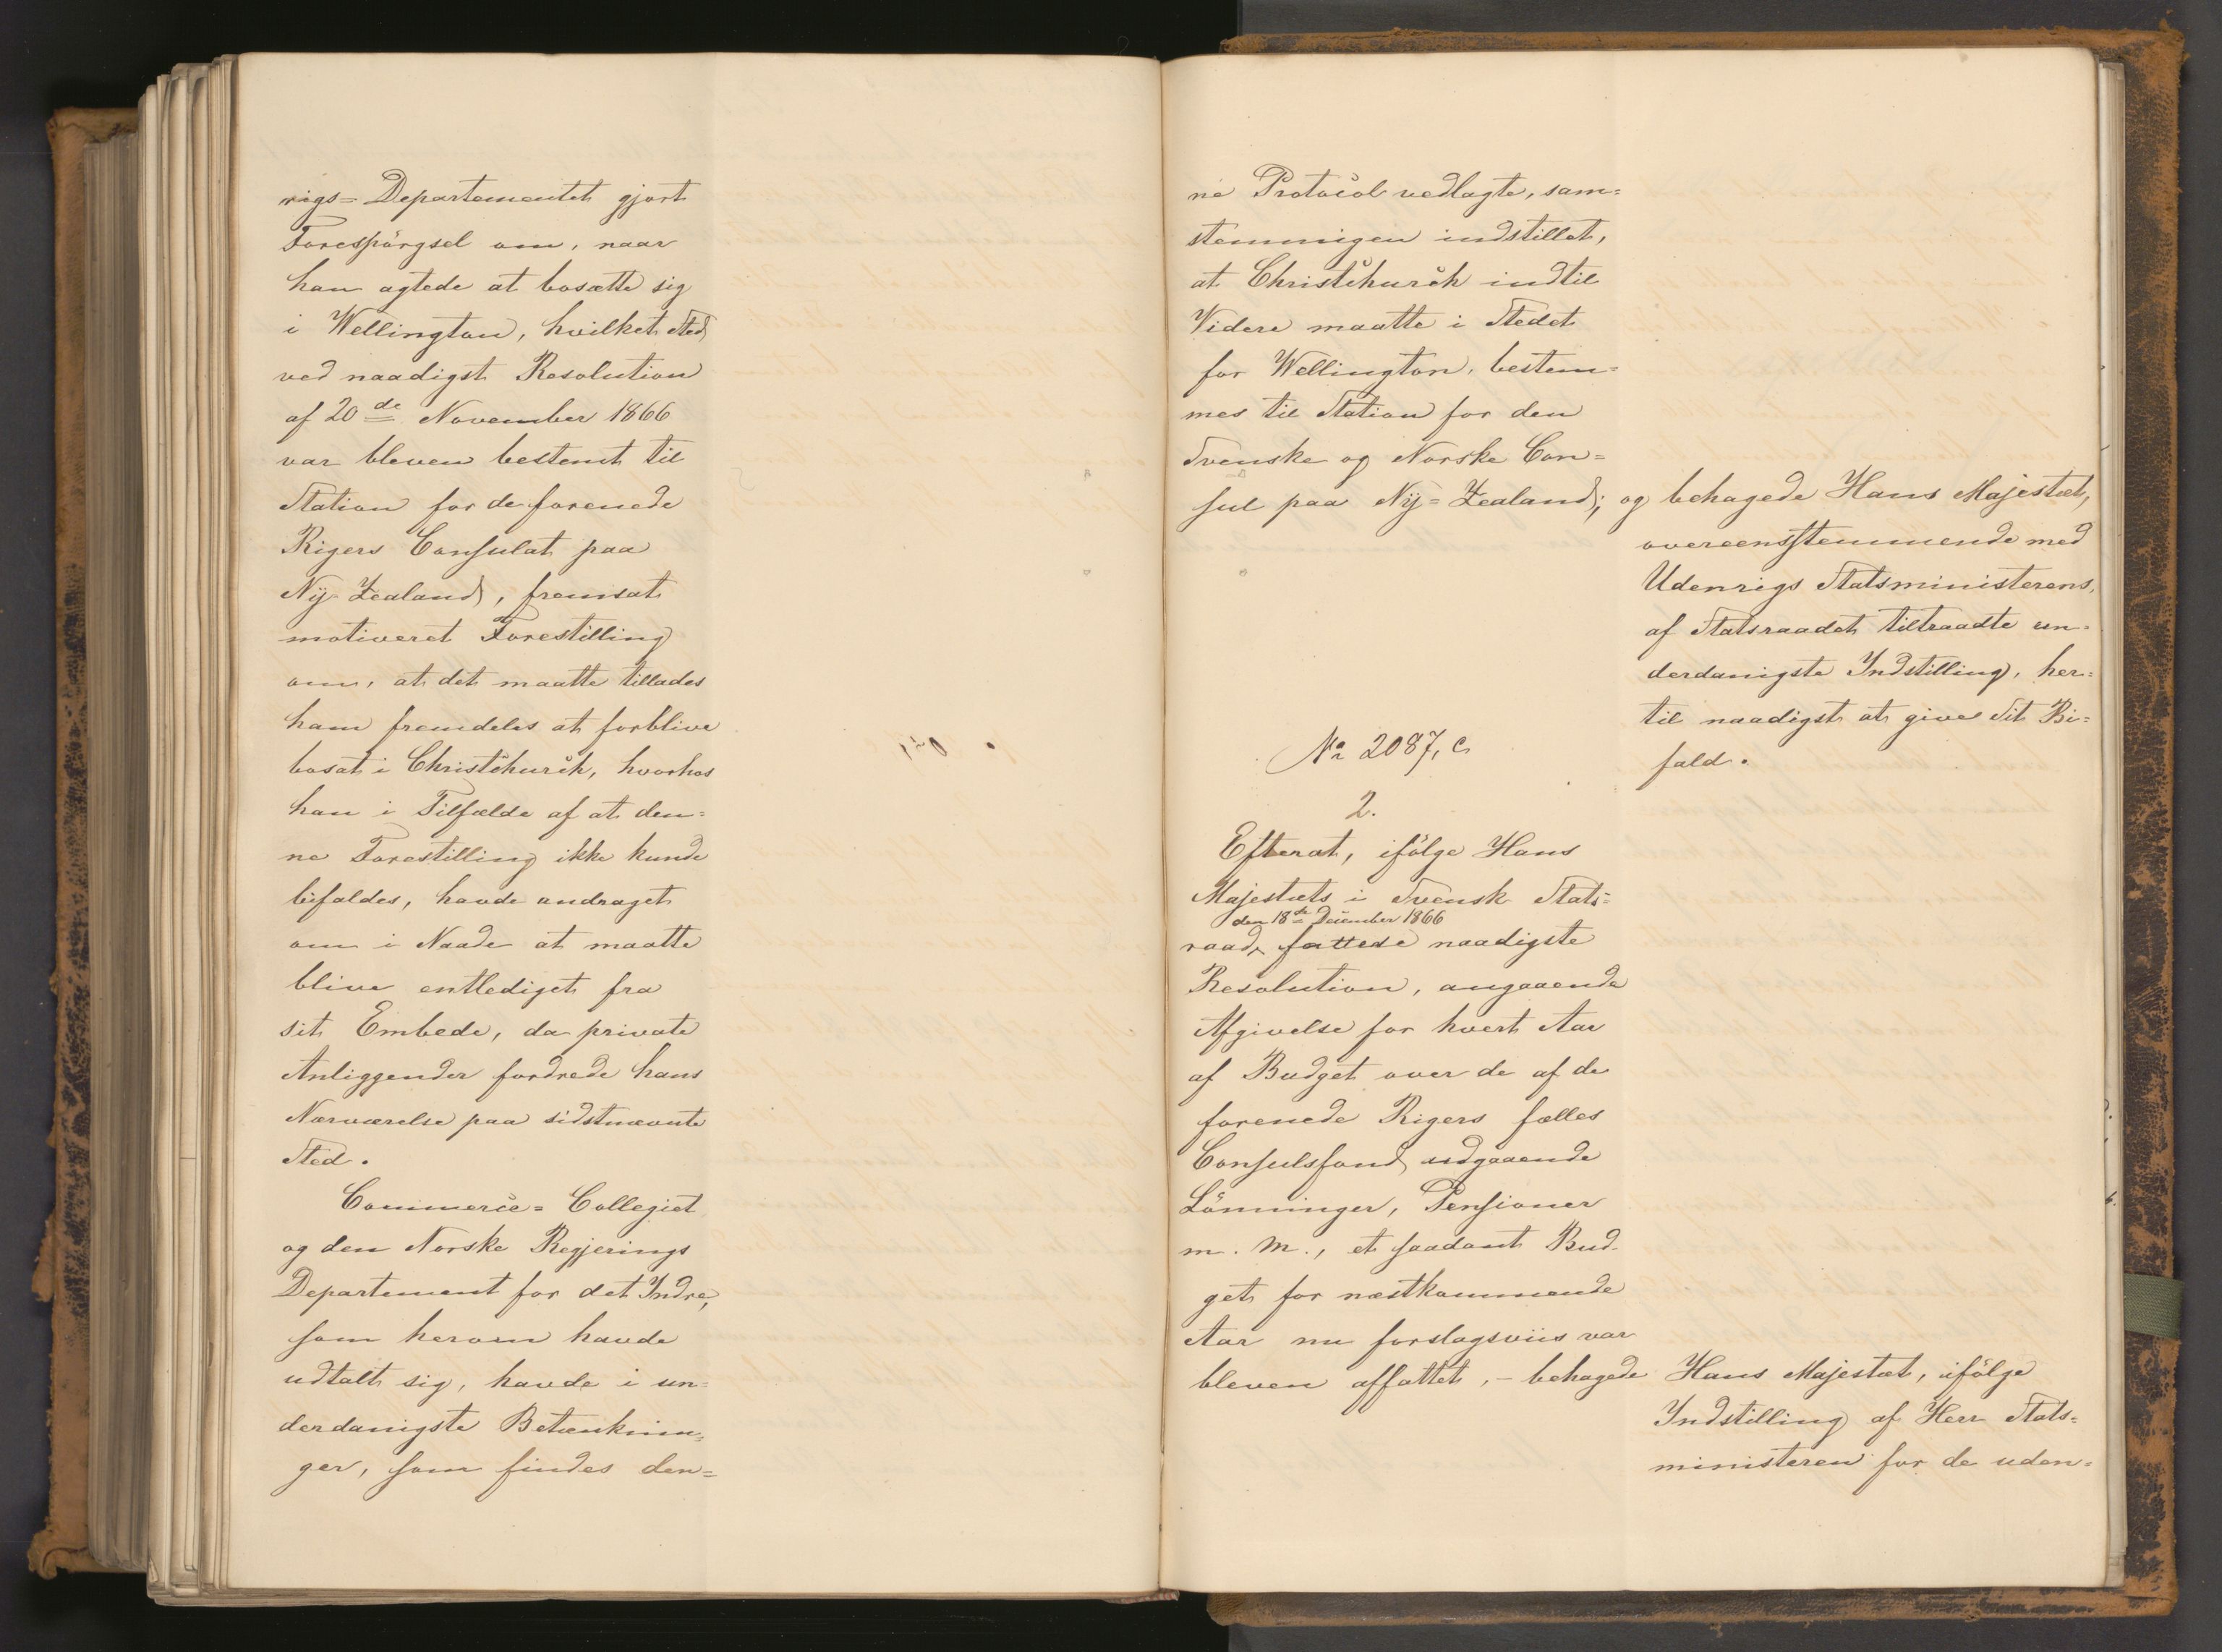 rigs=Departementet gjort
Forespörgsel om, naar
han agtede at bosætte sig
i Wellington, hvilket Sted
ved naadigst Resolution
af 20de November 1866
var bleven bestemt til
Station for de forenede
Rigers Consulat paa
Ny Zealand, fremsat
motiveret Forestilling
om, at det maatte tillades
ham fremdeles at forblive
bosat i Christchurch, hvorhos
han i Tilfælde af at den=
ne Forestilling ikke kunde
bifaldes, havde andraget
om i Naade at maatte
blive entlediget fra
sit Embede, da private
Anliggender fordrede hans
Nærværelse paa sidstnævnte
Sted.
Commerce=Collegiet
og den Norske Regjerings
Departement for det Indre,
som herom havde
udtalt sig, havde i un=
derdanigste Betænknin=
ger, som findes den=
ne Protocol vedlagte, sam=
stemmigen indstillet,
at Christchurch indtil
Videre maatte i Stedet
for Wellington, bestem=
mes til Station for den
Svenske og Norske Con=
sul paa Ny=Zealand; og behagede Hans Majestæt,
overeensstemmende med
Udenrigs Statsministerens,
af Statsraadet tiltraadte un=
derdanigste Indstilling, her=
til naadigst at give Sit Bi=
fald.
No 2087, c
2.
Efterat, ifölge Hans
Majestæts i Svensk Stats=
den 18de December 1866
raad fattede naadigste
Resolution, angaaende
Afgivelse for hvert Aar
af Budget over de af de
forenede Rigers fælles
Consulsfond udgaaende
Lönninger, Pensioner
m. m., et saadant Bud-
get for næstkommende
Aar nu forslagsviis var
bleven affattet, - behagede Hans Majestæt, ifölge
Indstilling af Herr Stats=
ministeren for de uden=